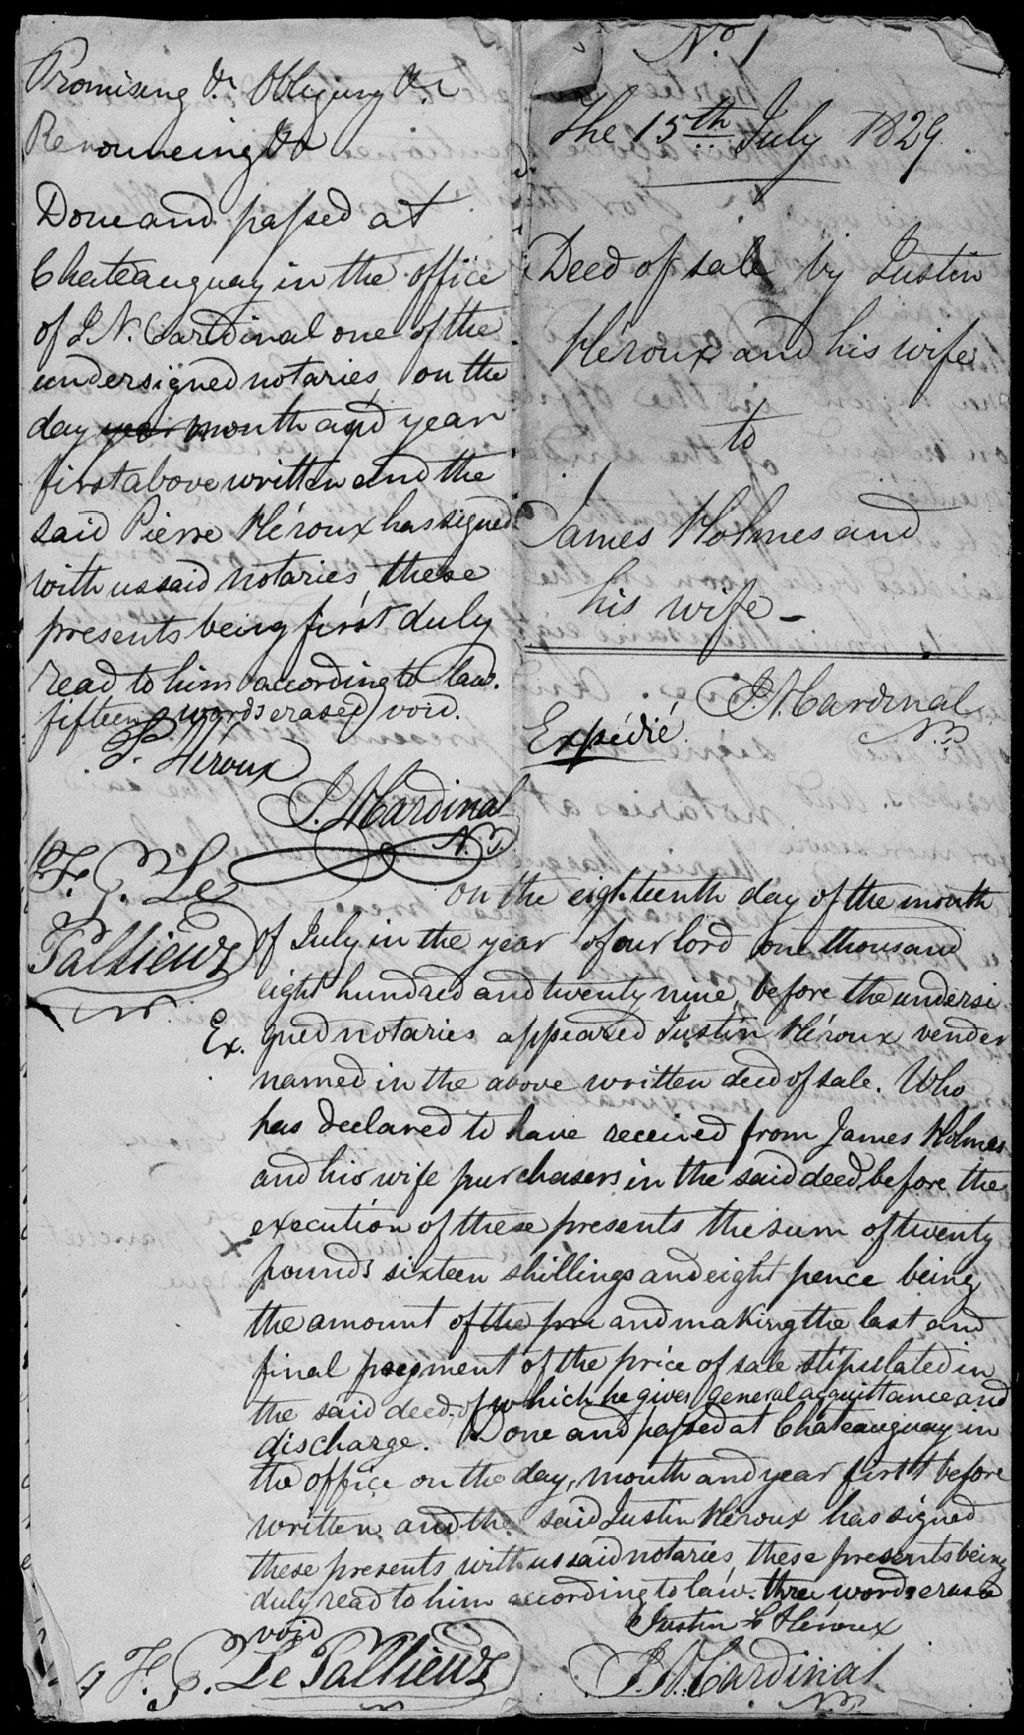 Promising &c Obliging &c
Renouncing &c
Done and passed at
Chateauguay in the office
of J. N. Cardinal one of the
undersigned notaries, on the
day year month and year
first above written and the
said Pierre Héroux has signed
with us said notaries, these
presents being first duly
read to him according to law.
fifteen words erased void.
P. Héroux
J. N. Cardinal
N. P.
F. G. Le
Pallieur
N. P.
No. 1
The 15th July 1829.
Deed of sale by Justin
Héroux and his wife
to
James Holmes and
his wife –
J. N. Cardinal
N. P.
Expédié.
On the eighteenth day of the month
of July in the year of our lord one thousand
eight hundred and twenty nine, before the undersi
Ex. gned notaries appeared Justin Héroux vender
named in the above written deed of sale. Who
has declared to have received from James Holmes
and his wife purchasers in the said deed, before the
execution of these presents the sum of twenty
pounds sixteen shillings and eight pence being
the amount of the pri and making the last and
final payment of the price of sale stipulated in
the said deed, of which he gives general acquittance and
discharge. Done and passed at Chateauguay in
the office on the day, month and year first before
written and the said Justin Héroux has signed
these presents with us said notaries, these presents being
duly read to him according to law. three words erased
void
Justin Héroux
F. G. Le Pallieur
J. N. Cardinal
N. P.